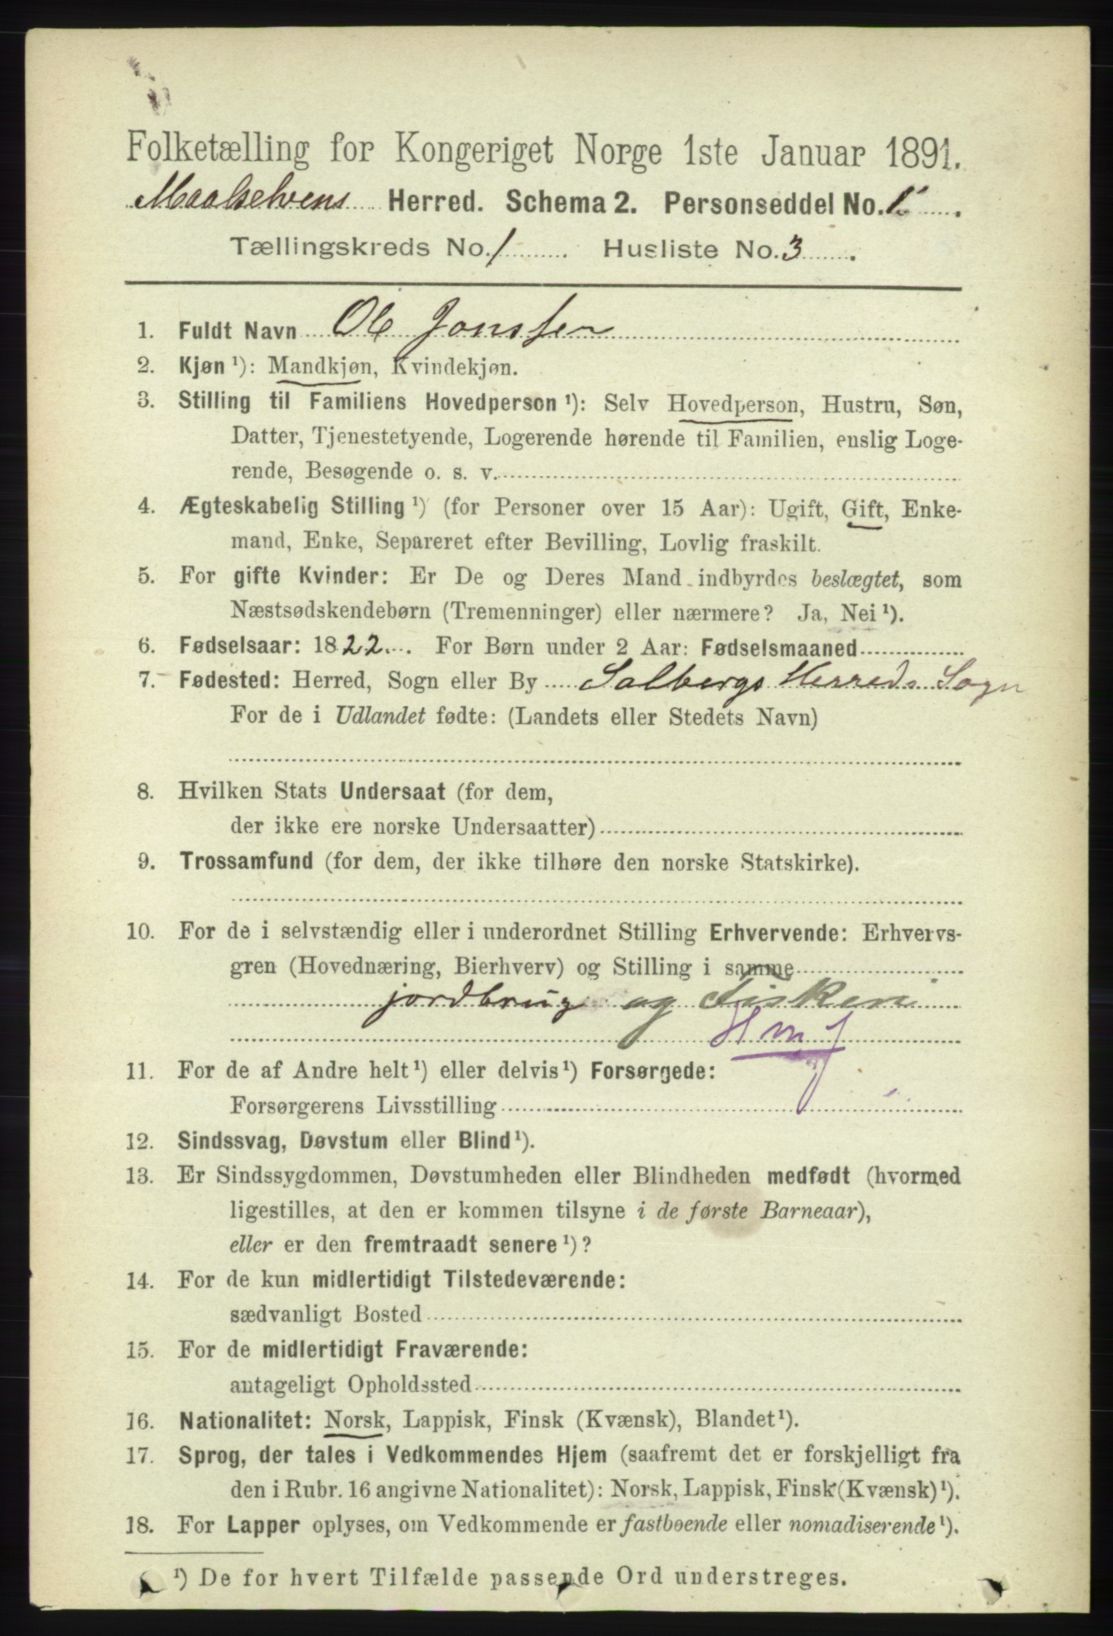 Folketælling for Kongeriget Norge 1ste Januar 1891.
Maalselvens Herred. Schema 2. Personseddel No. 1
Tællingskreds No. 1 Husliste No. 3
1. Fuldt Navn Ole Jonssen
2. Kjøn ¹): Mandkjøn, Kvindekjøn.
3. Stilling til Familiens Hovedperson ¹): Selv Hovedperson, Hustru, Søn,
Datter, Tjenestetyende, Logerende hørende til Familien, enslig Loge-
rende, Besøgende o. s. v.
4. Ægteskabelig Stilling ¹) (for Personer over 15 Aar): Ugift, Gift, Enke-
mand, Enke, Separeret efter Bevilling, Lovlig fraskilt.
5. For gifte Kvinder: Er De og Deres Mand indbyrdes beslægtet, som
Næstsødskendebørn (Tremenninger) eller nærmere? Ja, Nei ¹).
6. Fødselsaar: 1822. For Børn under 2 Aar: Fødselsmaaned
7. Fødested: Herred, Sogn eller By Salbergs Herreds Sogn
For de i Udlandet fødte: (Landets eller Stedets Navn)
8. Hvilken Stats Undersaat (for dem,
der ikke ere norske Undersaatter)
9. Trossamfund (for dem, der ikke tilhøre den norske Statskirke).
10. For de i selvstændig eller i underordnet Stilling Erhvervende: Erhvervs-
gren (Hovednæring, Bierhverv) og Stilling i samme
jordbrug og Fiskeri
11. For de af Andre helt ¹) eller delvis ¹) Forsørgede:
Forsørgerens Livsstilling
12. Sindssvag, Døvstum eller Blind ¹).
13. Er Sindssygdommen, Døvstumheden eller Blindheden medfødt (hvormed
ligestilles, at den er kommen tilsyne i de første Barneaar),
eller er den fremtraadt senere ¹)?
14. For de kun midlertidigt Tilstedeværende:
sædvanligt Bosted
15. For de midlertidigt Fraværende:
antageligt Opholdssted
16. Nationalitet: Norsk, Lappisk, Finsk (Kvænsk), Blandet ¹).
17. Sprog, der tales i Vedkommendes Hjem (saafremt det er forskjelligt fra
den i Rubr. 16 angivne Nationalitet): Norsk, Lappisk, Finsk (Kvænsk) ¹).
18. For Lapper oplyses, om Vedkommende er fastboende eller nomadiserende ¹).
¹) De for hvert Tilfælde passende Ord understreges.